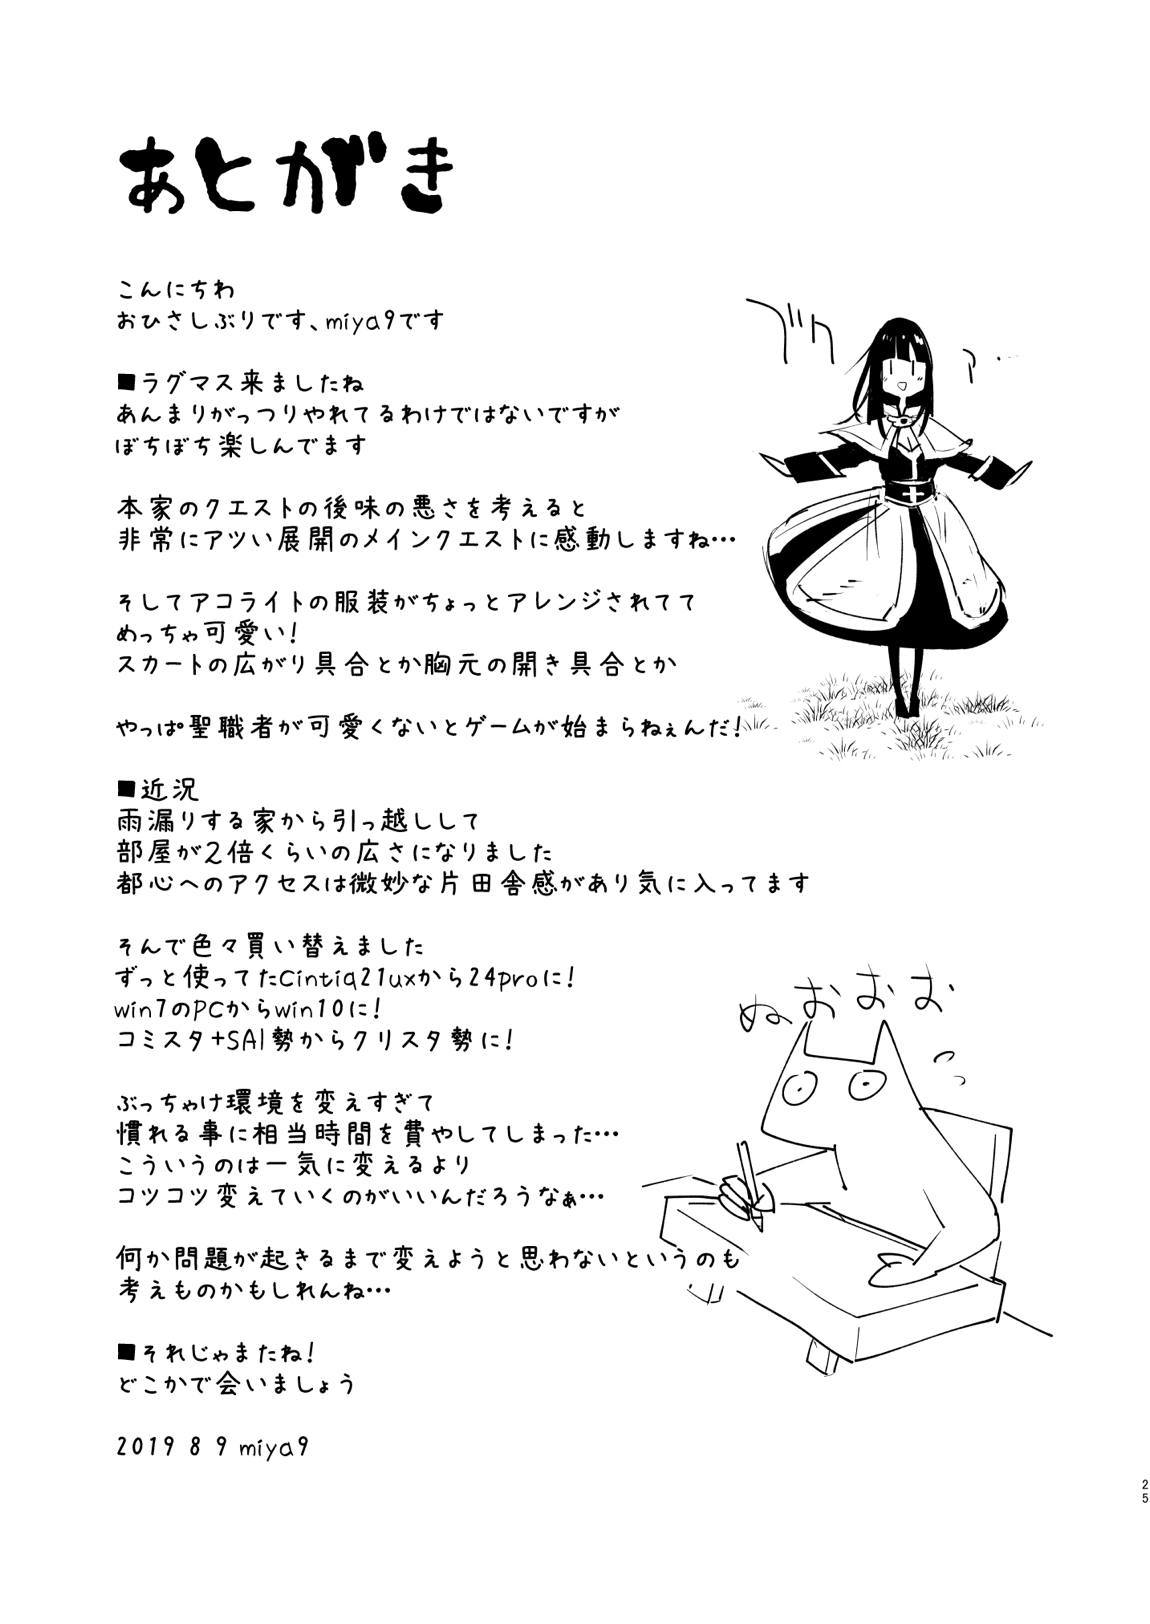 あとがき
こんにちわ
おひさしぶりです、miya9です
■ラグマス来ましたね
あんまりがっつりやれてるわけではないですが
ぼちぼち楽しんでます
本家のクエストの後味の悪さを考えると
非常にアツい展開のメインクエストに感動しますね…
そしてアコライトの服装がちょっとアレンジされてて
めっちゃ可愛い!
スカートの広がり具合とか胸元の開き具合とか
やっぱ聖職者が可愛くないとゲームが始まらねぇんだ!
■近況
雨漏りする家から引っ越しして
部屋が2倍くらいの広さになりました
都心へのアクセスは微妙な片田舎感があり気に入ってます
そんで色々買い替えました
ずっと使ってたCintiq21uxから24proに!
win7のPCからwin10に!
コミスタ+SAI勢からクリスタ勢に!
ぶっちゃけ環境を変えすぎて
慣れる事に相当時間を費やしてしまった…
こういうのは一気に変えるより
コツコツ変えていくのがいいんだろうなぁ…
何か問題が起きるまで変えようと思わないというのも
考えものかもしれんね…
■それじゃまたね!
どこかで会いましょう
2019 8 9 miya9
ぬおおお
25